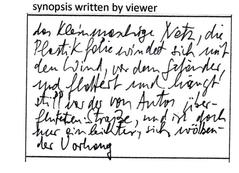 synopsis written by viewer
das kleinmaschige Netz, die
Plastikfolie windet sich mit
den Wind, vor dem Geländer,
und flattert und hängt
still vor der von Autos über-
fluteten Straße, und ist doch
nur ein leichter, sich wölben-
der Vorhang